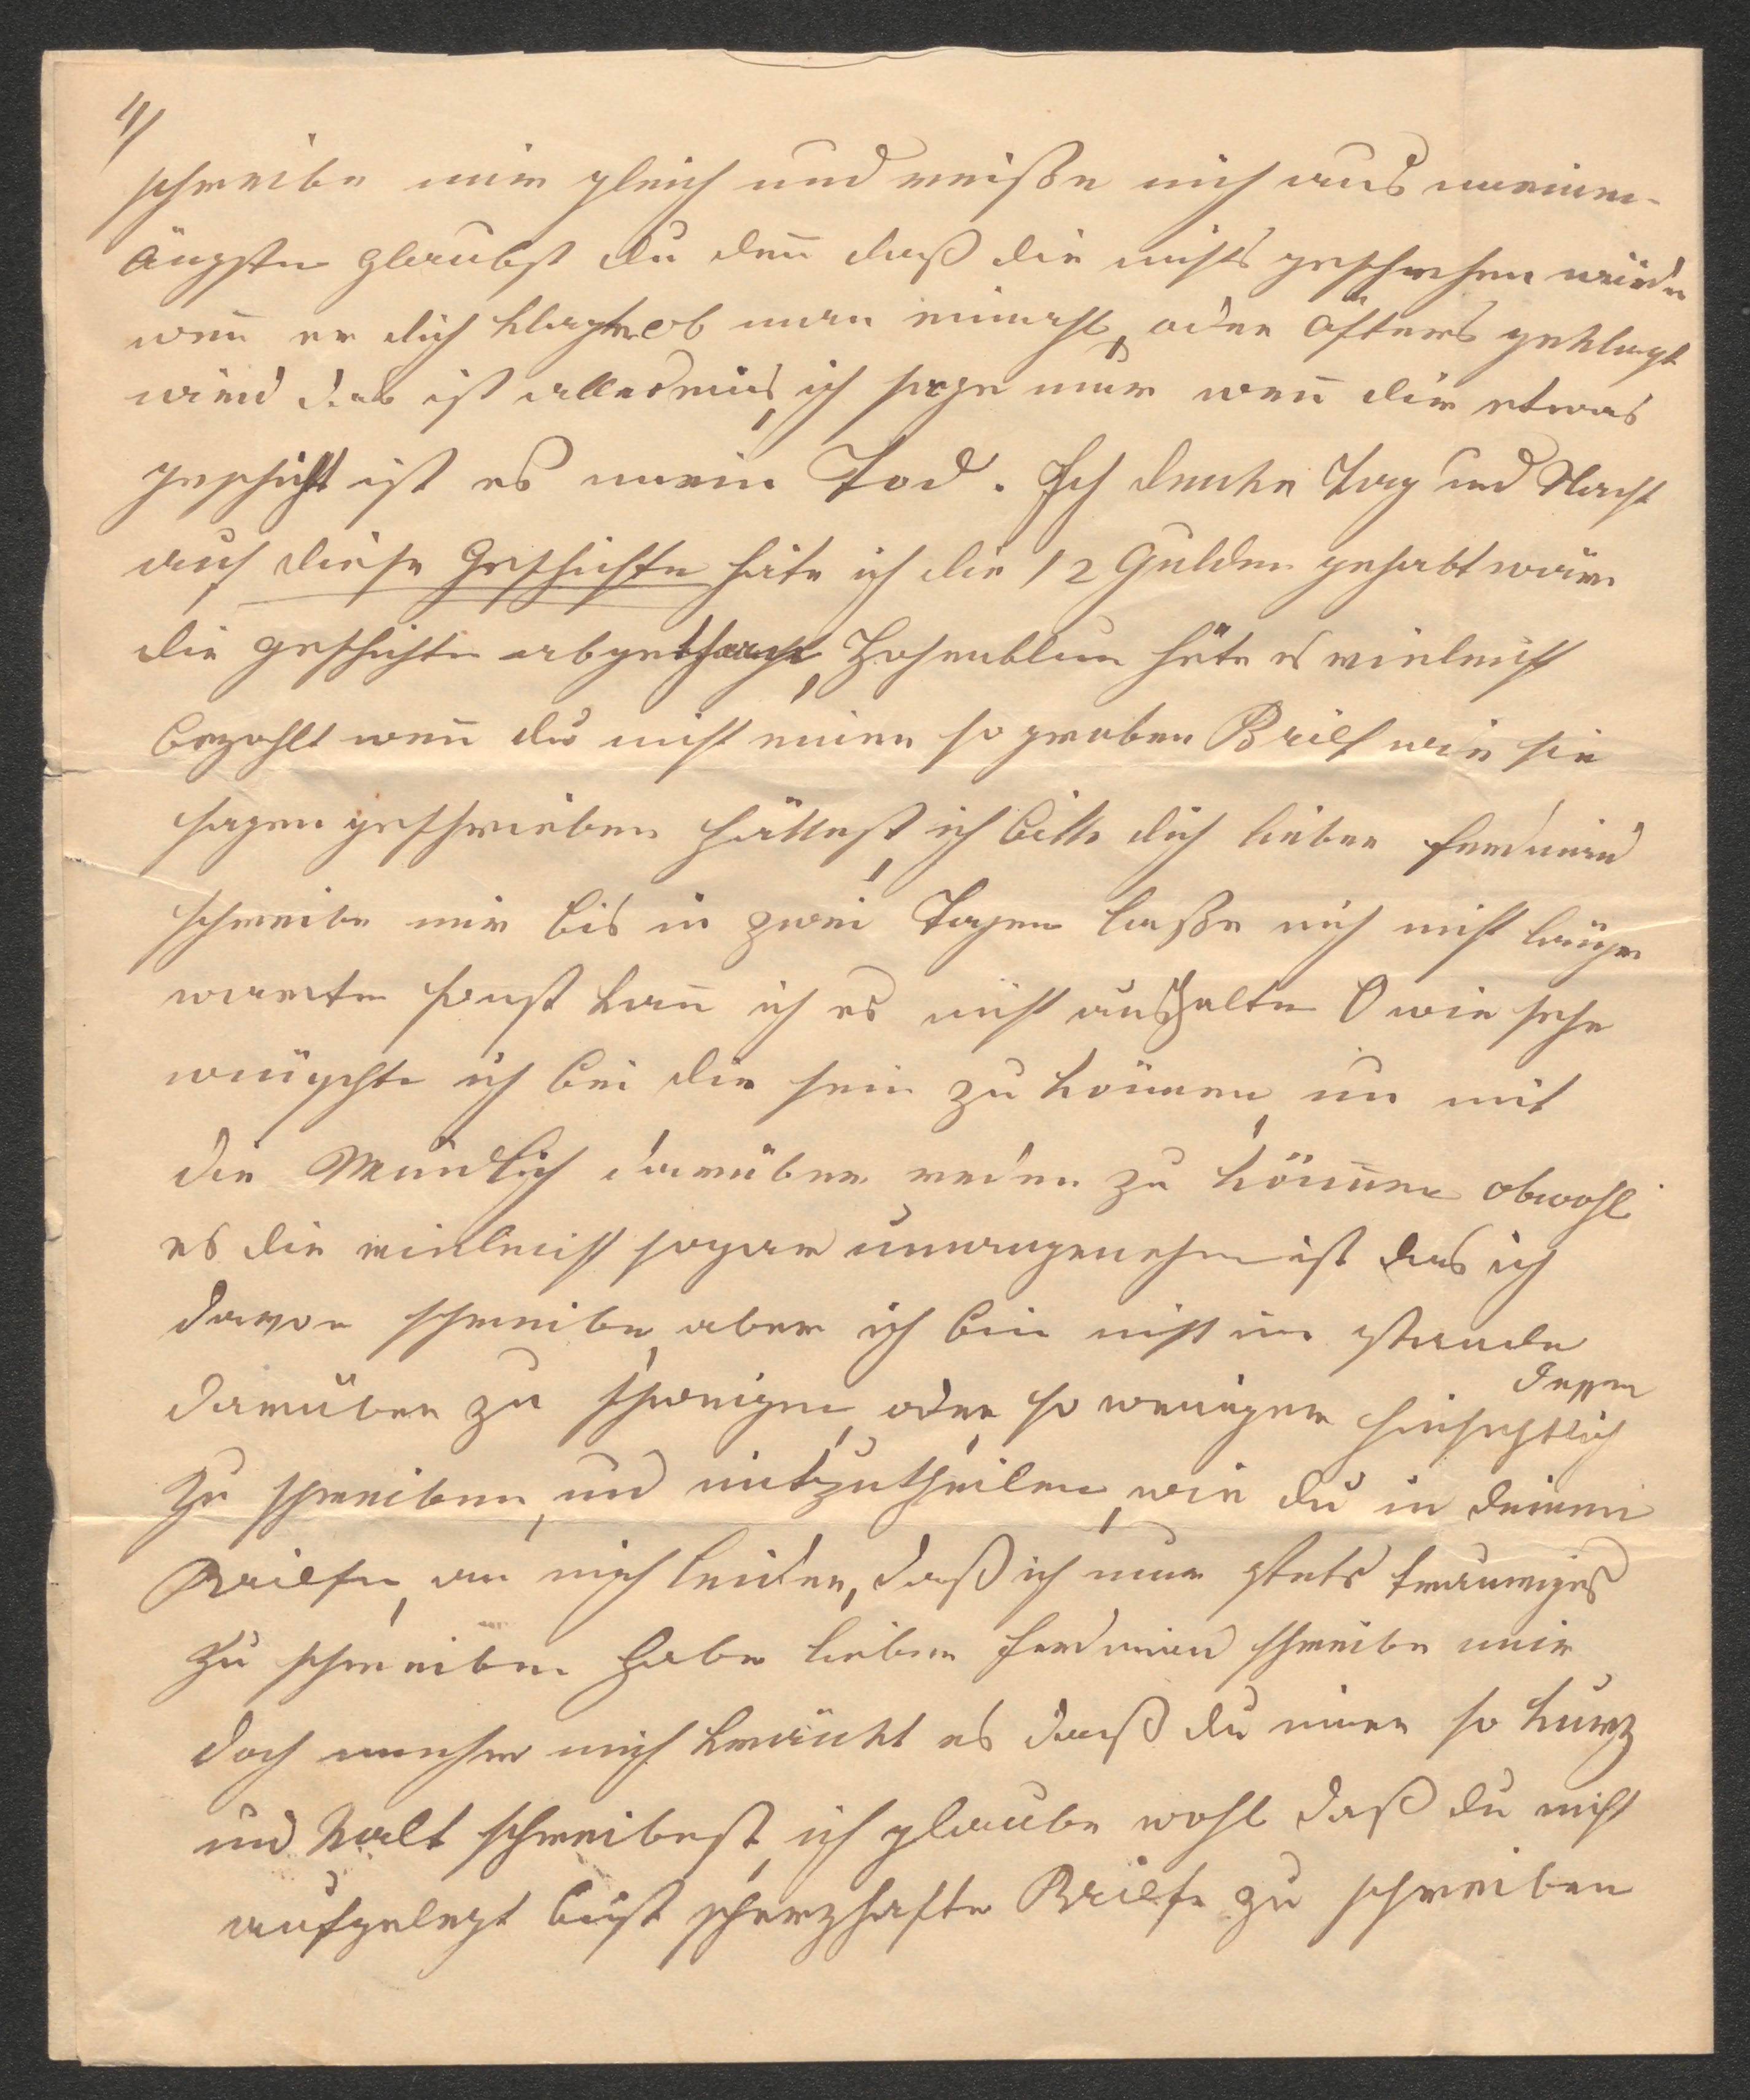 4/
schreibe mir gleich und reiße mich aus meinen
Ängsten glaubst du den̄ daß dir nichts geschehen würde
wen̄ er dich klagte ob man einmahl, oder öfters geklagt
wird das ist alles eins, ich sage nur wen̄ dir etwas
geschieht ist es mein Tod. Ich denke Tag und Nacht
auf diese Geschichte häte ich die 12 Gulden gehabt wäre
die geschichte abgethan, Hosenblum häte es vieleicht
bezahlt wen̄ du nicht einen so groben Brief wie sie
sagen geschrieben hättest, ich bitte dich lieber Ferdinand
schreibe mir bis in zwei Tagen laße mich nicht länger
warten sonst kan̄ ich es nicht aushalten O wie sehr
wünschte ich bei dir sein zu können, um mit
dir Mündlich darüber reden zu kön̄nen obwohl
es dir vieleicht sogar unangenehm ist das ich
davon schreibe, aber ich bin nicht im stande
darüber zu schweigen, oder so weniger dessen hinsichtlich
zu schreiben, und mitzutheilen, wie du in deinen
Briefen, an mich leider, daß ich nur stets trauriges
zu schreiben habe lieber Ferdinand schreibe mir
doch mehr mich kränkt es daß du immer so kurz
und kalt schreibest, ich glaube wohl daß du nicht
aufgelegt bist scherzhafte Briefe zu schreiben